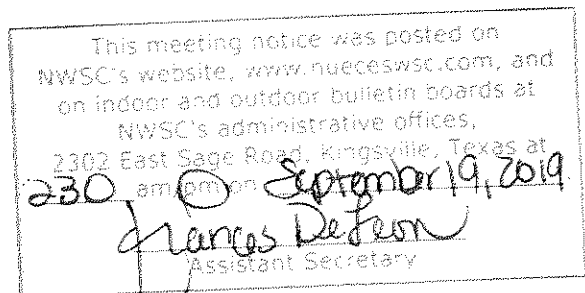 This meeting notice was posted on
NWSC's website, www.nueceswsc.com, and
on indoor and outdoor bulletin boards at
NWSC's administrative offices,
2302 East Sage Road, Kingsville, Texas at
230 am/pm on September 19, 2019
Frances DeLeon
Assistant Secretary